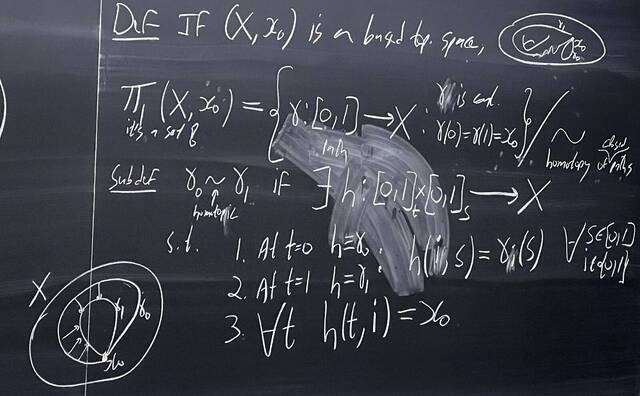 Def If (X, x₀) is a based top. space,
π₁(X, x₀) = { γ: [0,1] → X : γ is cont. γ(0)=γ(1)=x₀ } / ~
it's a set of
path
homotopy of paths
closed
Subdef γ₀ ~ γ₁ if ∃ h: [0,1]ₜ × [0,1]ₛ → X
homotopic
s.t. 1. At t=0 h=γ₀ : h(i,s) = γᵢ(s) ∀ s∈[0,1]
2. At t=1 h=γ₁
3. ∀t h(t,i) = x₀
X
γ₁ γ₀
x₀
γ₁
x₀